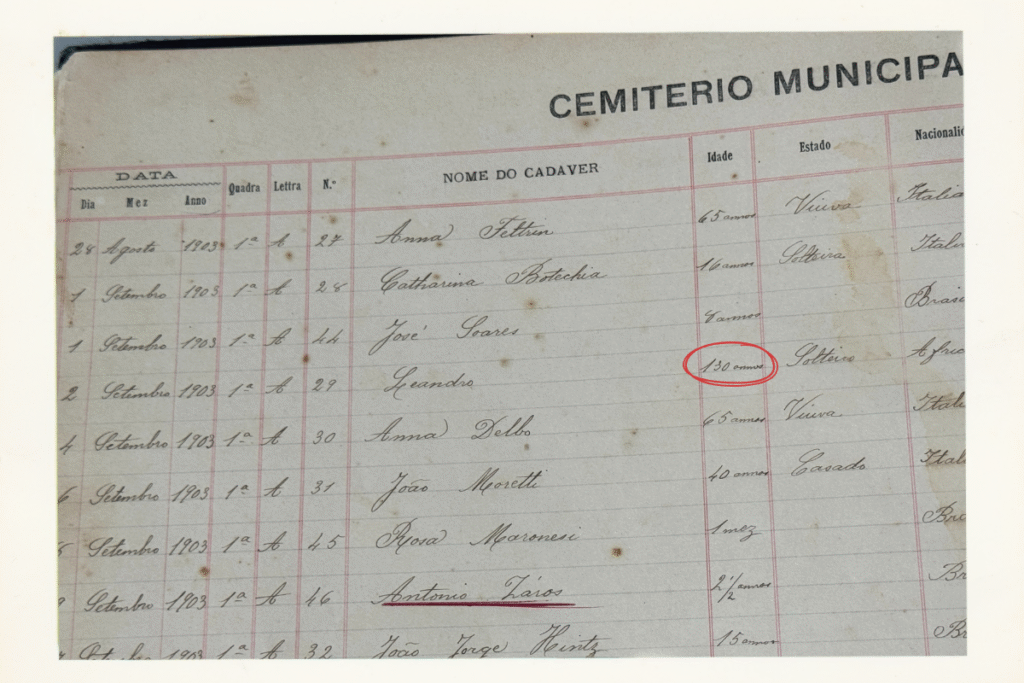 CEMITERIO MUNICIPA
DATA
Dia Mez Anno Quadra Lettra N.º NOME DO CADAVER Idade Estado Nacionalid
28 Agosto 1903 1ª A 27 Anna Feltrin 65 annos Viuva Italia
1 Setembro 1903 1ª A 28 Catharina Botechia 16 annos Solteira Italia
1 Setembro 1903 1ª A 44 José Soares annos Brasi
2 Setembro 1903 1ª A 29 Leandro 130 annos Solteiro Afric
4 Setembro 1903 1ª A 30 Anna Delbo 65 annos Viuva Itali
6 Setembro 1903 1ª A 31 João Moretti 40 annos Casado Itali
8 Setembro 1903 1ª A 45 Rosa Maronesi 1 mez Bra
Setembro 1903 1ª A 46 Antonio Záros 2 1/2 annos Br
Setembro 1903 1ª A 32 João Jorge Hintz 15 annos Br